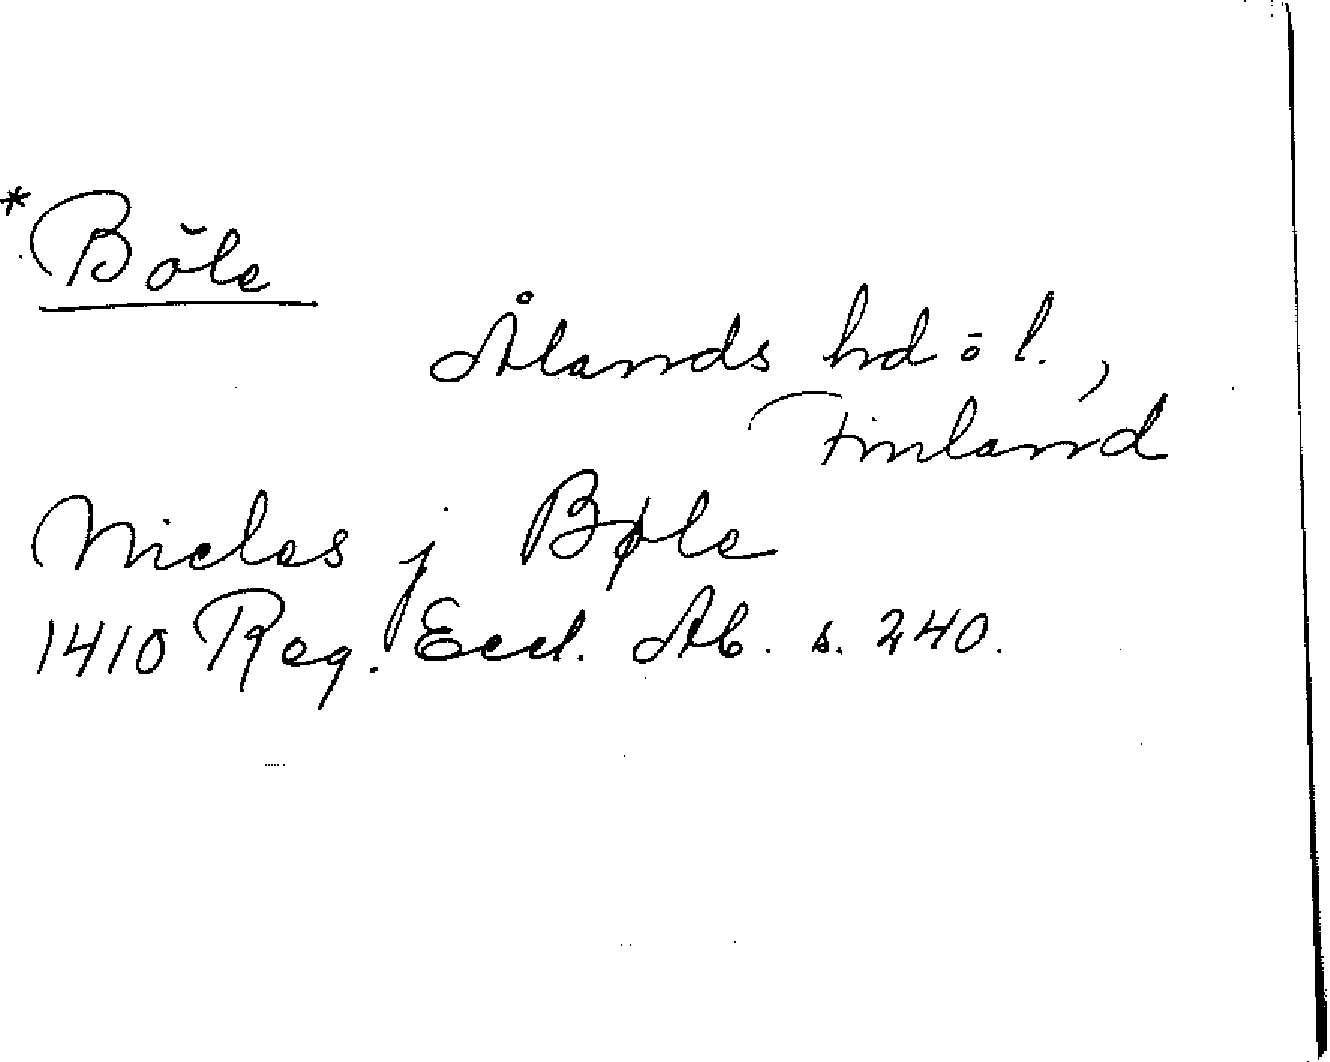 *Böle
Ålands hd o l.,
Finland
Niclas j Bøle
1410 Reg. Eccl. Ab. s. 240.